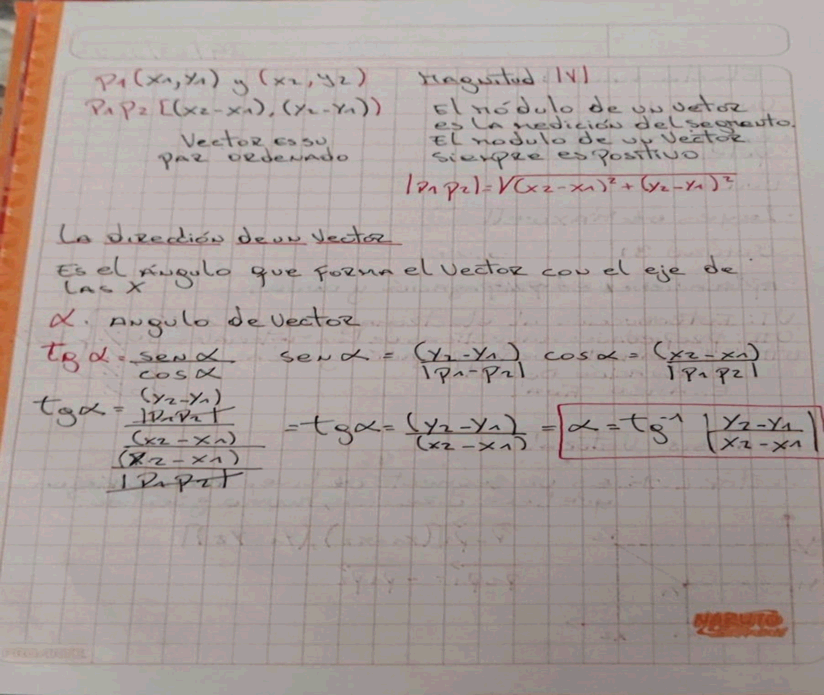 P1(x1,y1) y (x2,y2)
P1P2 [(x2-x1),(y2-y1)]
Vector es su
par ordenado
Magnitud |V|
El módulo de un vetor
es la medición del segmento.
El modulo de un vector
siempre es positivo
|P1P2|=√(x2-x1)²+(y2-y1)²
La dirección de un vector
Es el ángulo que forma el vector con el eje de
las x
α. Angulo de vector
tg α = sen α / cos α   sen α = (y2-y1) / |P1-P2|   cos α = (x2-x1) / |P1P2|
tg α = (y2-y1) / |P1P2| / (x2-x1) / (x2-x1) / |P1P2| = tg α = (y2-y1) / (x2-x1) = α = tg⁻¹ |y2-y1 / x2-x1|
NARUTO